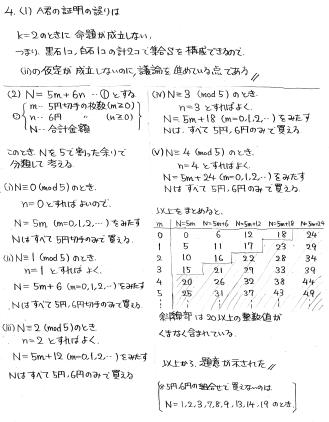 4. (1) A君の証明の誤りは
k=2のときに命題が成立しない、
つまり、黒石1コ、白石1コの計2コで集合Sを構成できるので、
(ii)の仮定が成立しないのに議論を進めている点である
(2) N=5m+6n …① とする
m…5円切手の枚数(m≧0)
n…6円 〃 (n≧0)
N…合計金額
このときNを5で割った余りで
分類して考える
(i) N≡0 (mod 5)のとき、
n=0とすればよいので、
N=5m (m=0,1,2,…)をみたす
Nはすべて5円切手のみで買える
(ii) N≡1 (mod 5)のとき、
n=1とすればよく、
N=5m+6 (m=0,1,2,…)をみたす
Nはすべて5円、6円切手のみで買える.
(iii) N≡2 (mod 5)のとき
n=2とすればよく、
N=5m+12 (m=0,1,2,…)をみたす
Nはすべて5円、6円のみで買える
(iv) N≡3 (mod 5)のとき、
n=3とすればよく、
N=5m+18 (m=0,1,2,…)をみたす
Nは、すべて5円、6円のみで買える
(v) N≡4 (mod 5)のとき、
n=4とすればよく、
N=5m+24 (m=0,1,2,…)をみたす
Nはすべて5円、6円のみで買える.
以上をまとめると、
m N=5m N=5m+6 N=5m+12 N=5m+18 N=5m+24
0 0 6 12 18 24
1 5 11 17 23 29
2 10 16 22 28 34
3 15 21 27 33 39
4 20 26 32 38 44
5 25 31 37 43 49
斜線部は20以上の整数値が
くまなく含まれている.
以上から、題意が示された
※5円、6円の組合せで買えないのは
N=1,2,3,7,8,9,13,14,19のとき